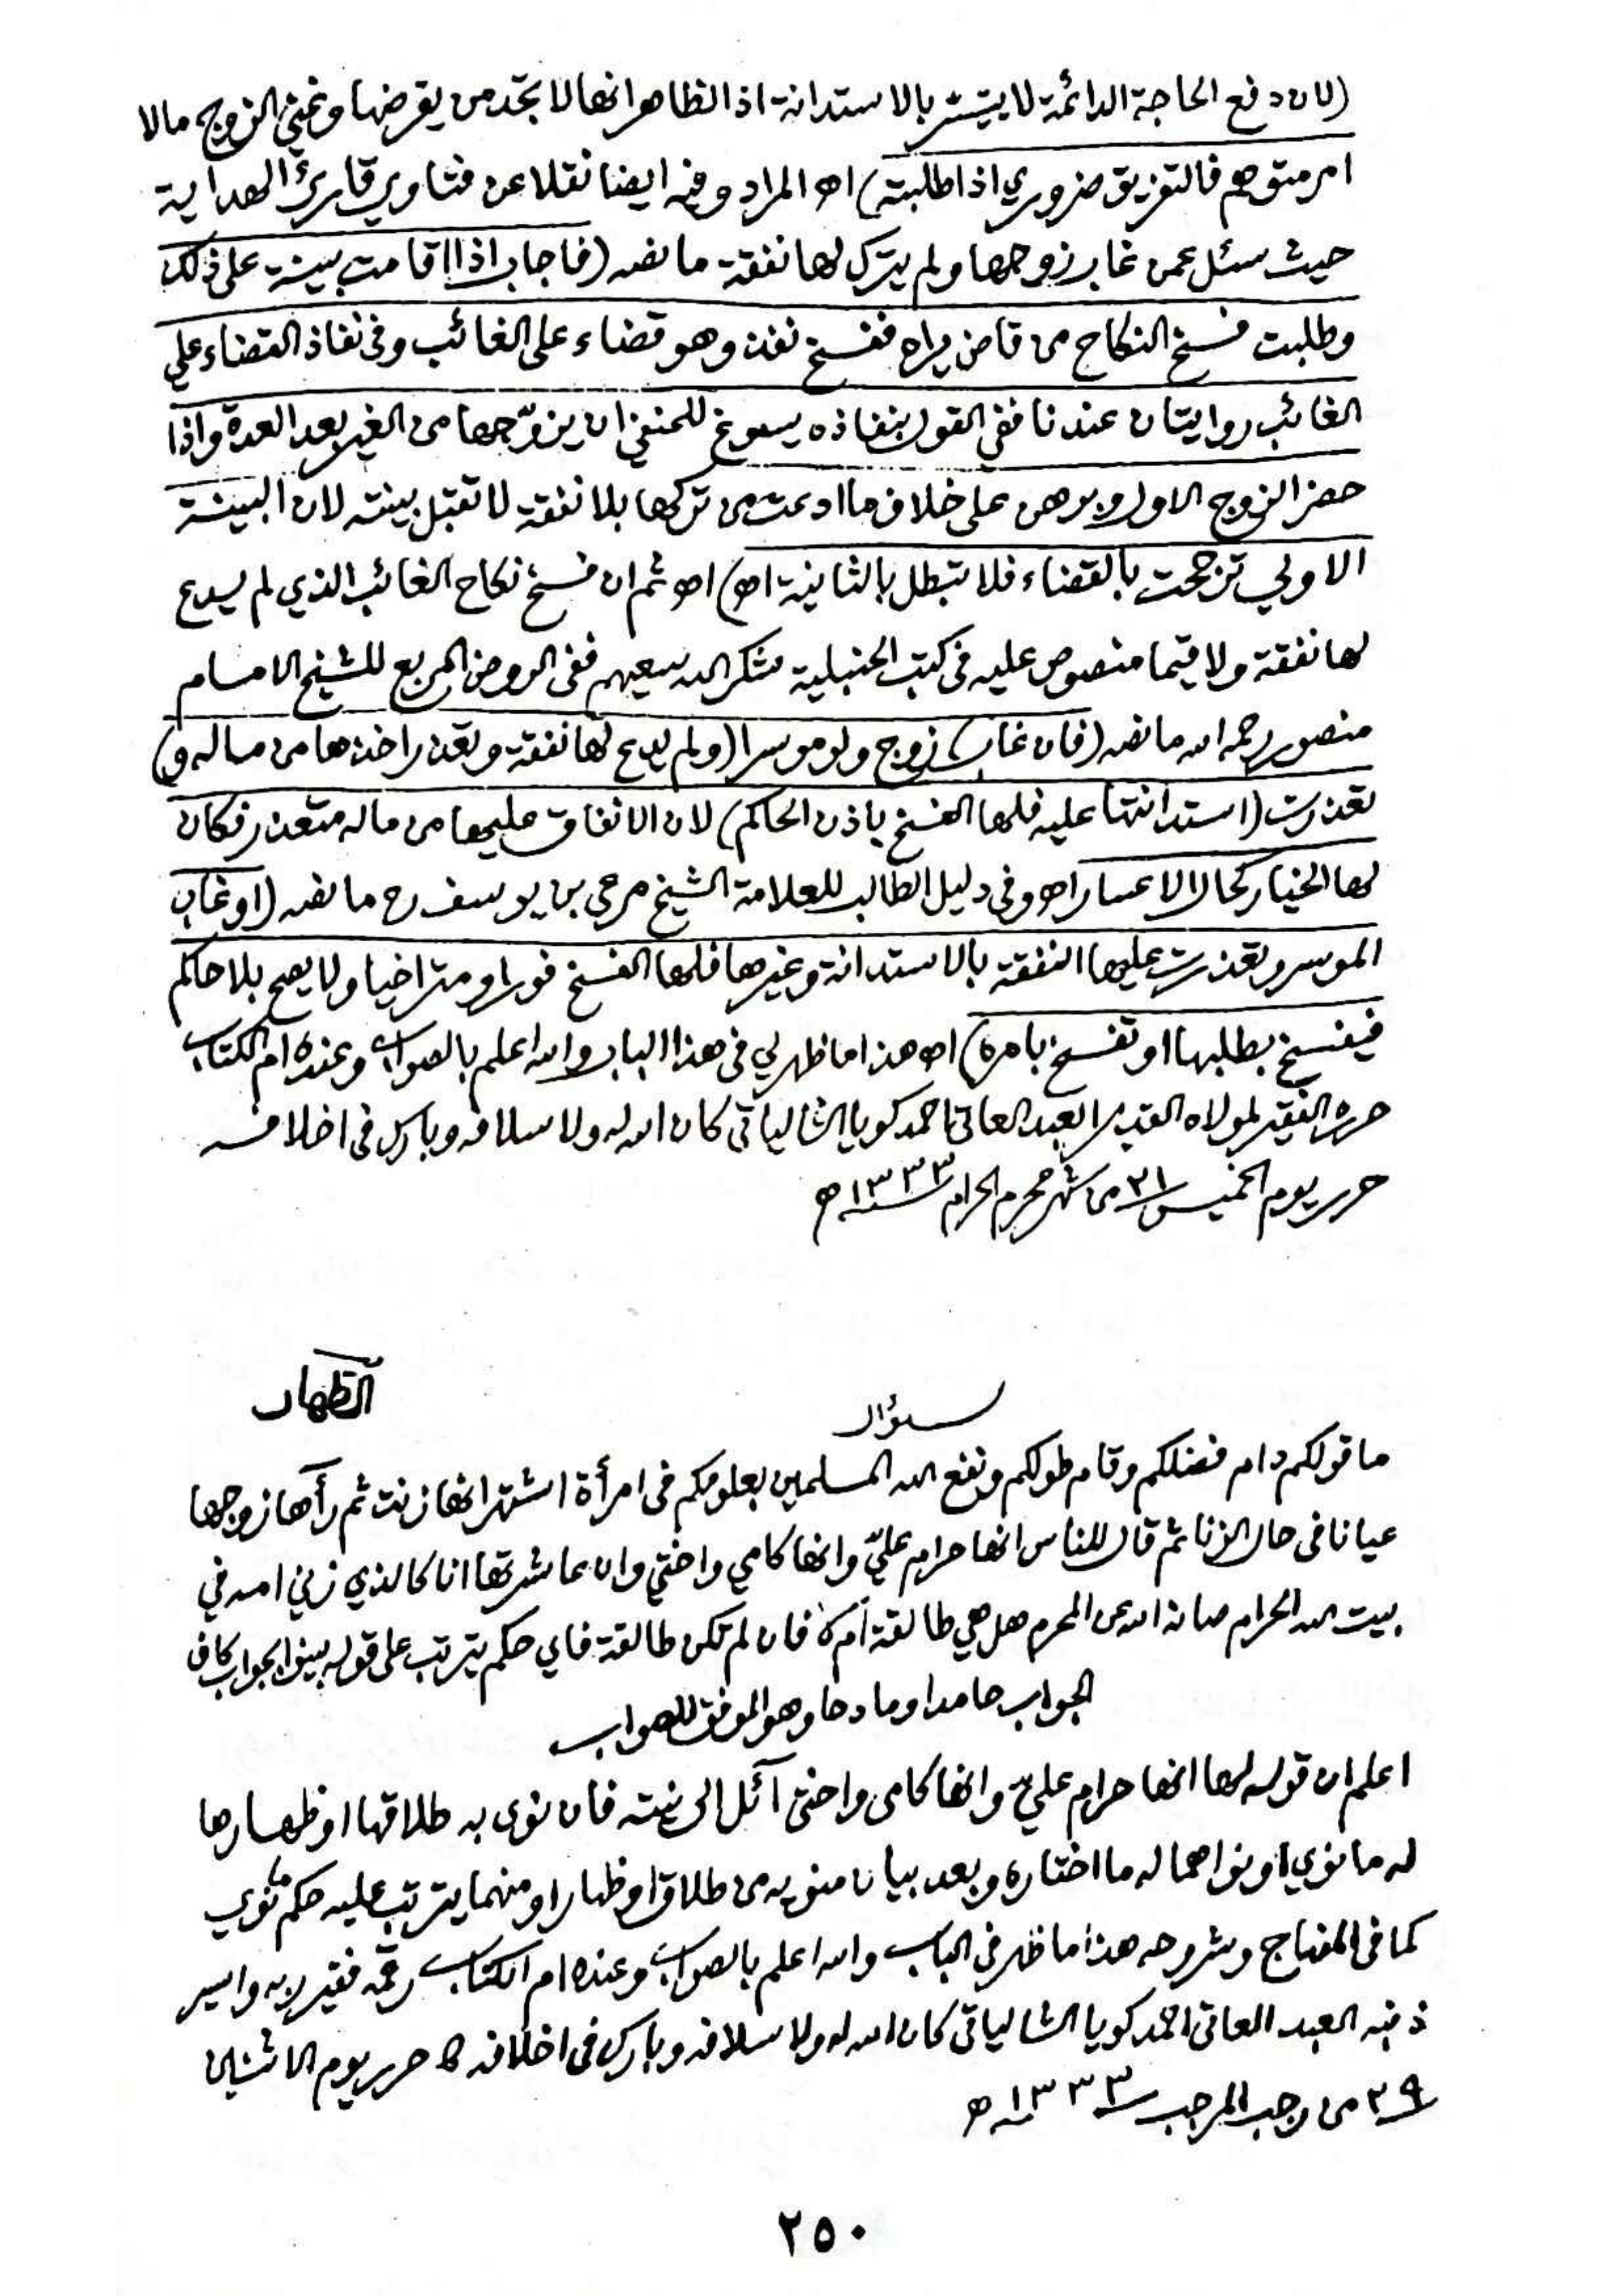 (لان دفع الحاجة الدائمة لا يتيسر بالاستدانة اذ الظاهر انها لا تجد من يقرضها وغنى الزوج مالا
امر متوهم فالتفريق ضروري اذا طلبته) اھ المراد وفيه ايضا نقلا عن فتاوي قارئ الهداية
حيث سئل عمن غاب زوجها ولم يترك لها نفقة ما نصه (فاجاب اذا اقامت بينة على ذلك
وطلبت فسخ النكاح من قاض يراه ففسخ نفذ وهو قضاء على الغائب وفى نفاذ القضاء علي
الغائب روايتان عندنا ففي القول بنفاذه يسوغ للحنفي ان يزوّجها من الغير بعد العدة واذا
حضر الزوج الاول وبرهن على خلاف ما ادعت من تركها بلا نفقة لا تقبل بينته لان البينة
الاولي ترجحت بالقضاء فلا تبطل بالثانية اھ) اھ ثم ان فسخ نكاح الغائب الذي لم يدع
لها نفقة ولا قيما منصوص عليه فى كتب الحنبلية شكر الله سعيهم ففى الروض المربع للشيخ الامام
منصور رحمه الله ما نصه (فان غاب) زوج ولو موسرا (ولم يدع لها نفقة وتعذر اخذها من ماله و)
تعذرت (استدانتها عليه فلها الفسخ باذن الحاكم) لان الانفاق عليها من ماله متعذر فكان
لها الخيار كحال الاعسار اھ وفى دليل الطالب للعلامة الشيخ مرعي بن يوسف رح ما نصه (او غاب
الموسر وتعذرت عليها النفقة بالاستدانة وغيرها فلها الفسخ فورا ومتراخيا ولا يصح بلا حاكم
فيفسخ بطلبها او تفسخ بامره) اھ هذا ما ظهر لي فى هذا الباب والله اعلم بالصواب وعنده ام الكتاب
حرره الفقير لمولاه القدير العبد العاتى احمد كويا الشالياتى كان الله له ولاسلافه وبارك فى اخلافه
حرر يوم الخميس ٢١ من شهر محرم الحرام سنة ١٣٣٣ ھ
الظهار
سؤال
ما قولكم دام فضلكم وقام طولكم ونفع الله المسلمين بعلومكم فى امرأة اشتهر انها زنت ثم رآها زوجها
عيانا فى حال الزنا ثم قال للناس انها حرام عليّ وانها كامي واختي وان عاشرتها انا كالذي زني امه في
بيت الله الحرام صانه الله عن المحرم هل هي طالقة ام لا فان لم تكن طالقة فاي حكم يترتب على قوله بينوا الجواب كاف
الجواب حامدا ومادحا وهو الموفق للصواب
اعلم ان قوله لها انها حرام عليّ وانها كامى واختى آئل الى نيته فان نوى به طلاقها او ظهارها
له ما نوي او نواهما له ما اختاره وبعد بيان منويه من طلاق او ظهار او منهما يترتب عليه حكم ما نوي
كما فى المنهاج وشروحه هذا ما ظهر فى الباب والله اعلم بالصواب وعنده ام الكتاب رقمه فقير ربه واسير
ذنبه العبد العاتى احمد كويا الشالياتى كان الله له ولاسلافه وبارك فى اخلافه حرر يوم الاثنين
٢٩ من رجب المرجب سنة ١٣٣٣ ھ
٢٥٠